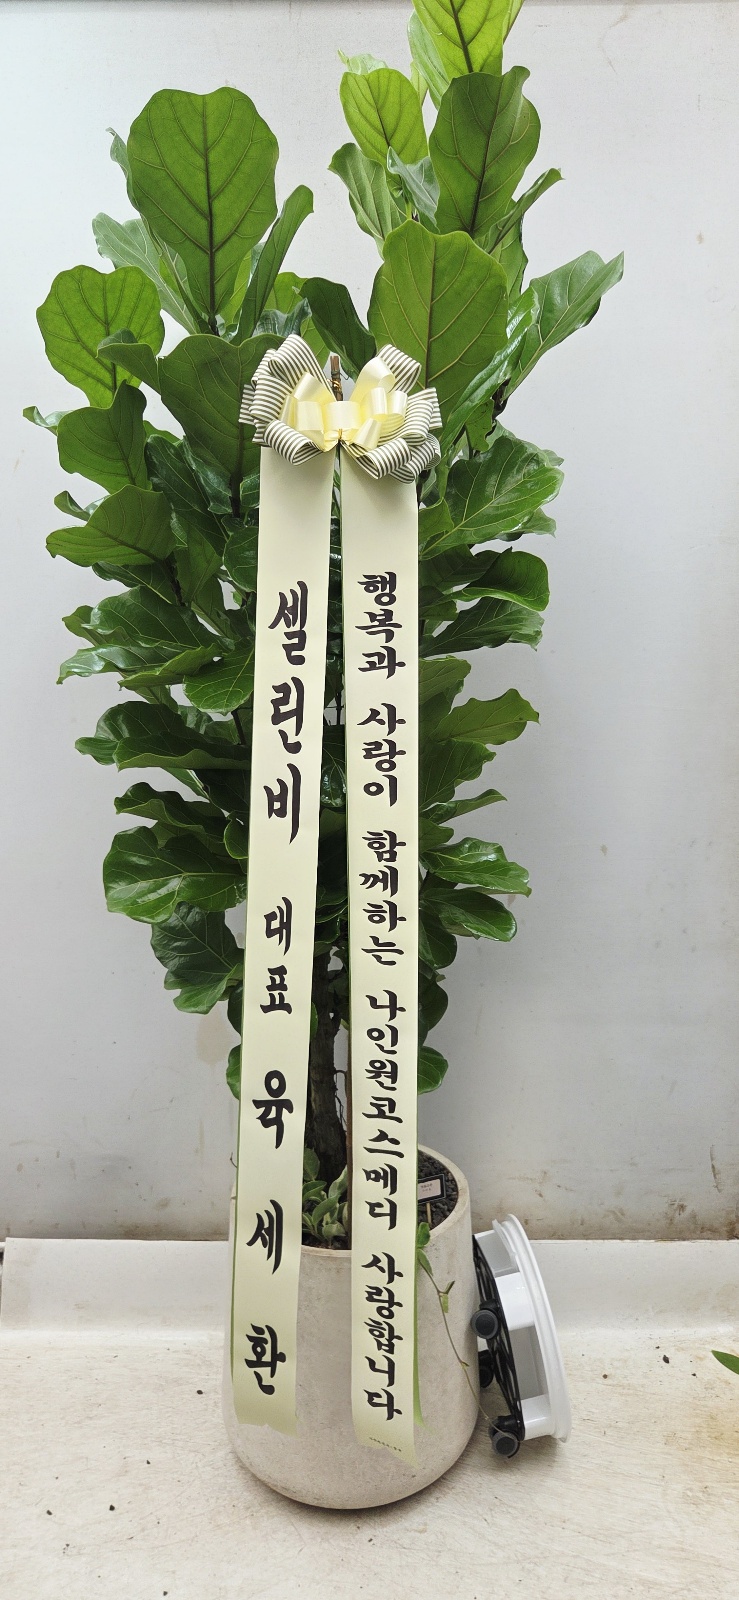 셀린비 대표 육세환
행복과 사랑이 함께하는 나인원코스메디 사랑합니다